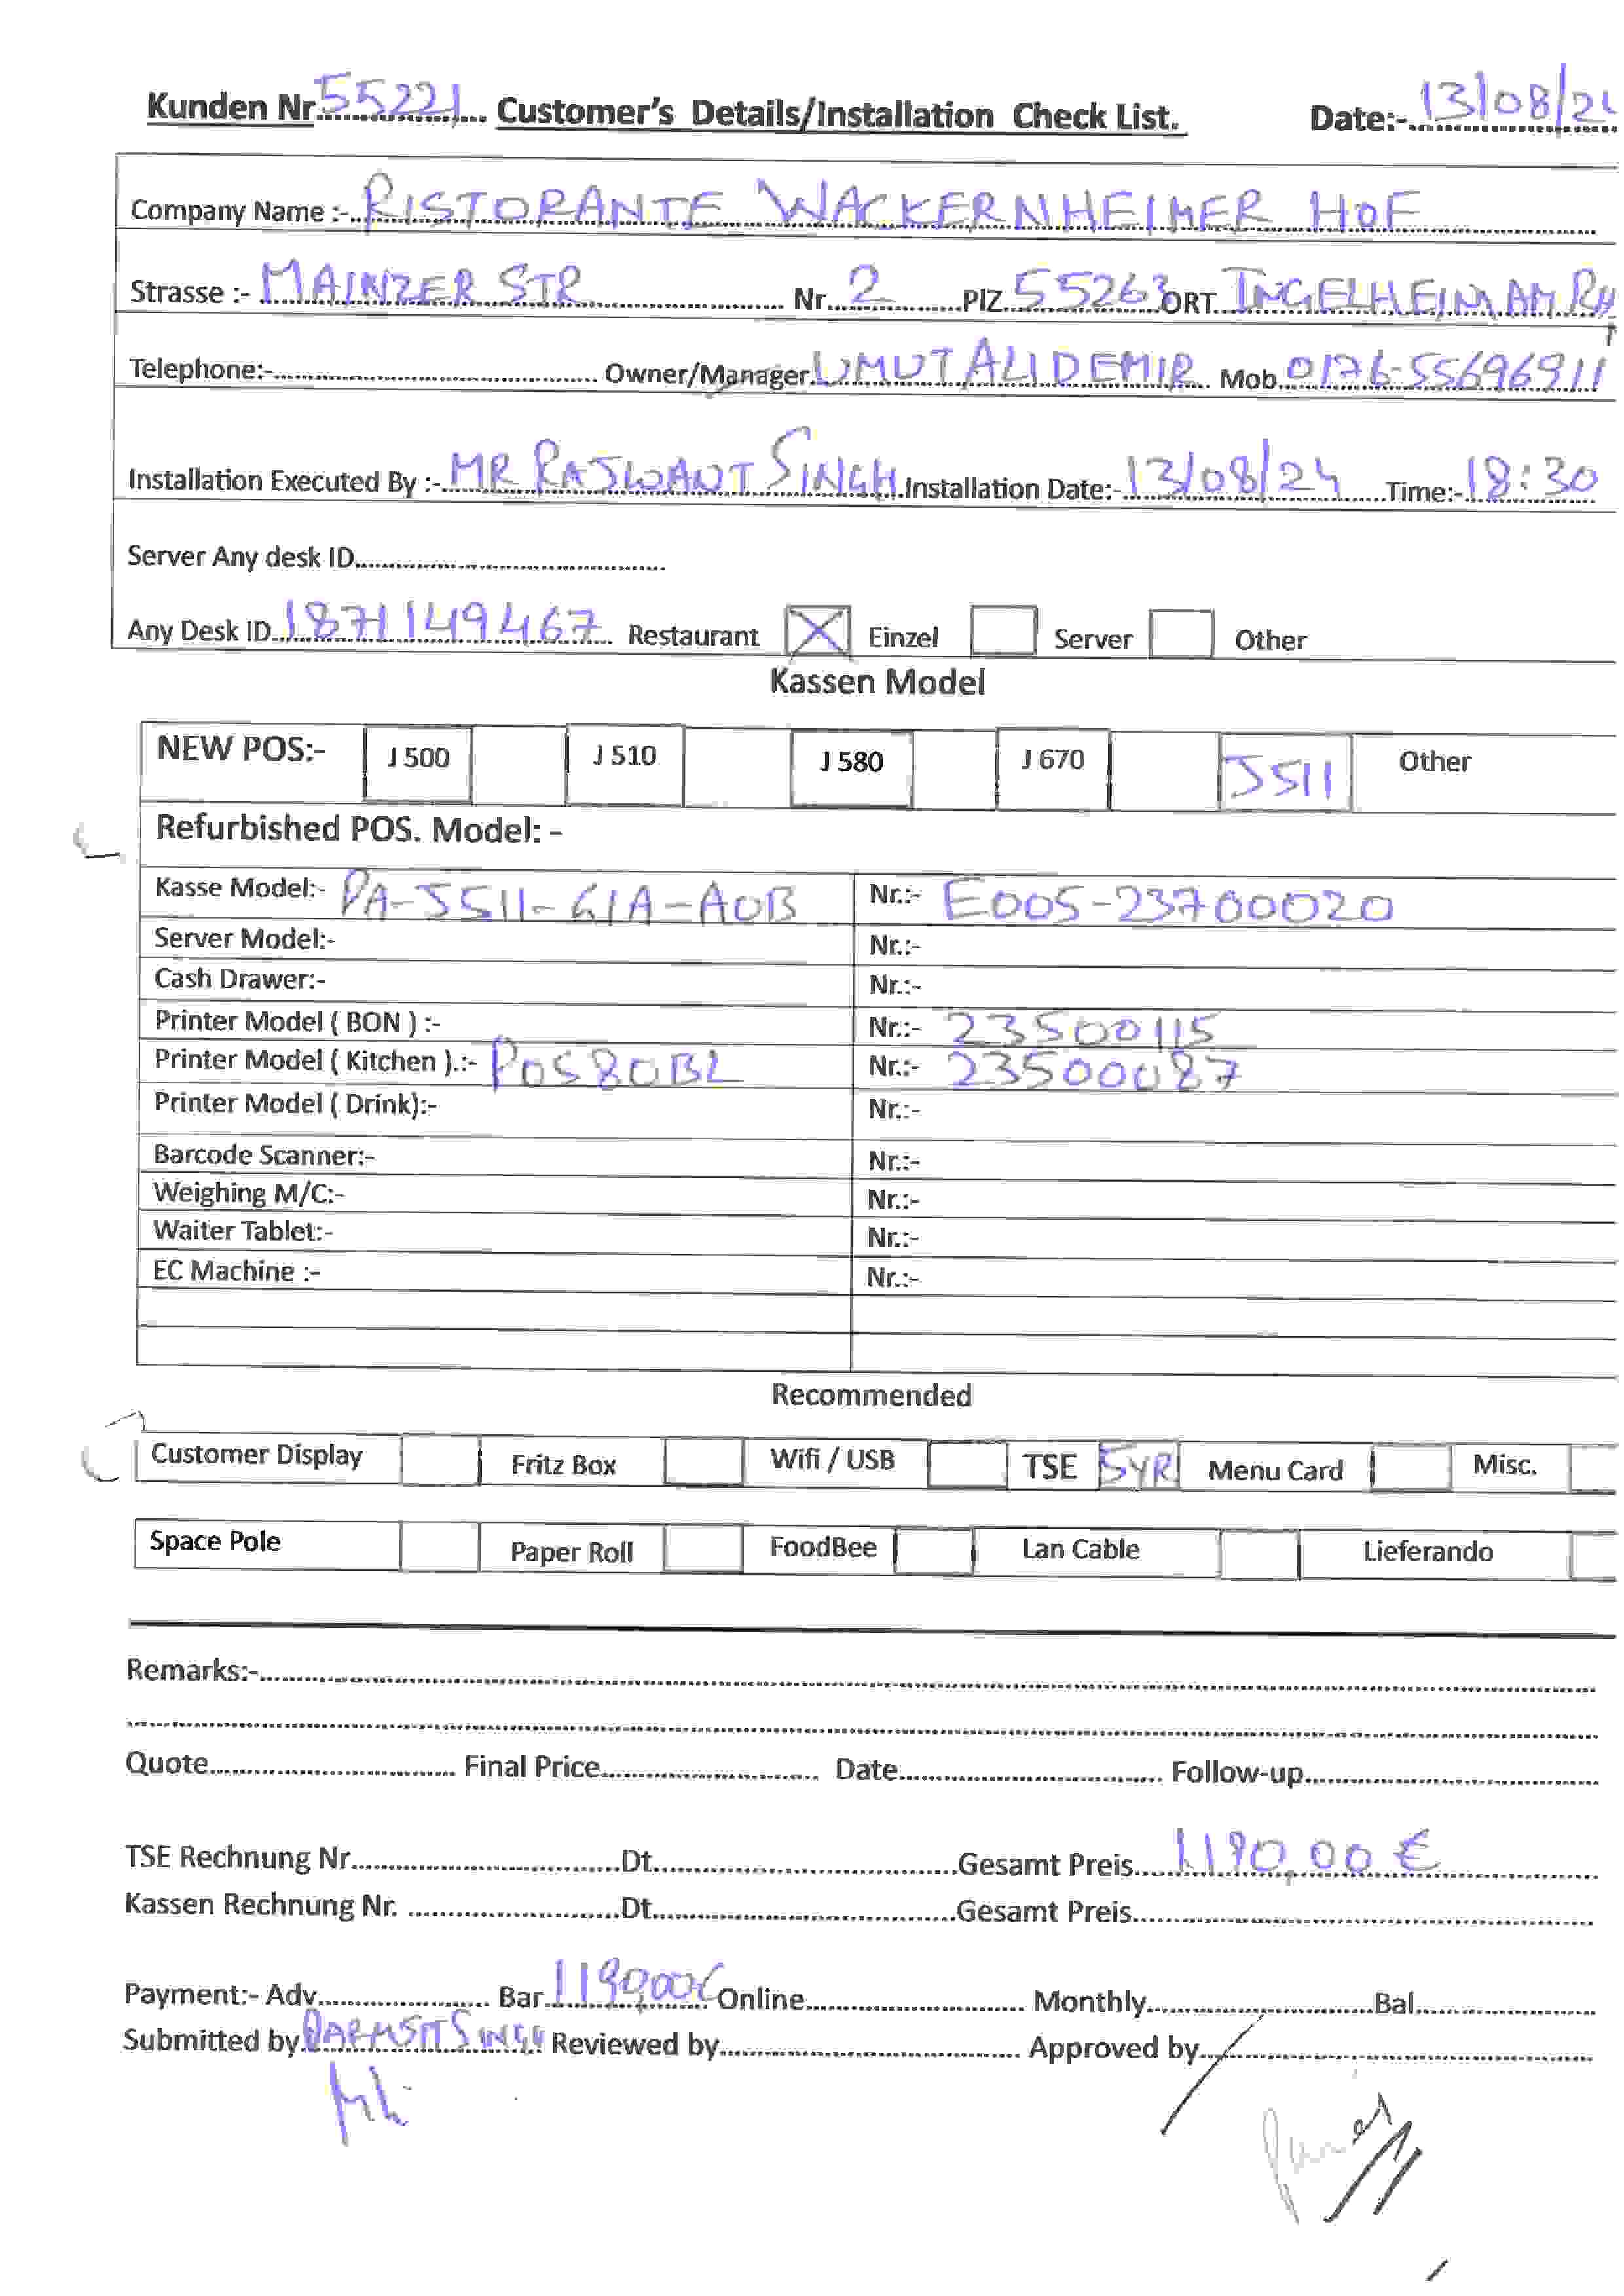 Kunden Nr 55221 Customer's Details/Installation Check List. Date:- 13/08/24
Company Name :- RISTORANTE WACKERNHEIMER HOF
Strasse :- MAINZER STR Nr. 2 PlZ 55263 ORT INGELHEIM AM RH
Telephone:- Owner/Manager UMUT ALI DEMIR Mob. 0176-55696911
Installation Executed By :- MR RAJWANT SINGH Installation Date:- 13/08/24 Time:- 18:30
Server Any desk ID
Any Desk ID 1871149467 Restaurant Einzel Server Other
Kassen Model
NEW POS:- J 500 J 510 J 580 J 670 J511 Other
Refurbished POS. Model: -
Kasse Model:- PA-J511-G1A-A0B Nr.:- E005-23700020
Server Model:- Nr.:-
Cash Drawer:- Nr.:-
Printer Model ( BON ) :- Nr.:- 23500115
Printer Model ( Kitchen ).:- POS80BL Nr.:- 23500087
Printer Model ( Drink):- Nr.:-
Barcode Scanner:- Nr.:-
Weighing M/C:- Nr.:-
Waiter Tablet:- Nr.:-
EC Machine :- Nr.:-
Recommended
Customer Display Fritz Box Wifi / USB TSE 5YR Menu Card Misc.
Space Pole Paper Roll FoodBee Lan Cable Lieferando
Remarks:-
Quote Final Price Date Follow-up
TSE Rechnung Nr. Dt. Gesamt Preis 1190,00 €
Kassen Rechnung Nr. Dt. Gesamt Preis
Payment:- Adv. Bar 1190,00€ Online Monthly Bal.
Submitted by PARMJIT SINGH Reviewed by Approved by